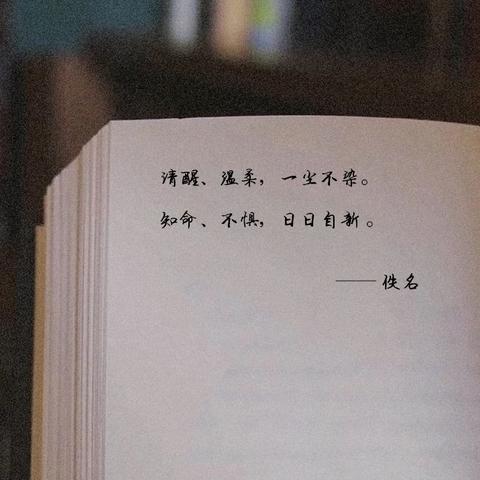 清醒、温柔，一尘不染。
知命、不惧，日日自新。
——佚名